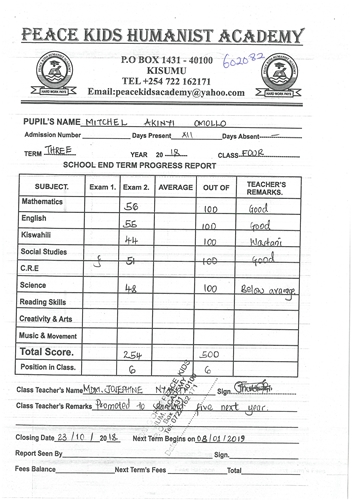 PEACE KIDS HUMANIST ACADEMY
P.O BOX 1431 - 40100
KISUMU
TEL +254 722 162171
Email:peacekidsacademy@yahoo.com
602082
HARD WORK PAYS
HARD WORK PAYS
PUPIL'S NAME MITCHEL AKINYI OMOLLO
Admission Number Days Present All Days Absent
TERM THREE YEAR 2018 CLASS FOUR
SCHOOL END TERM PROGRESS REPORT
SUBJECT. Exam 1. Exam 2. AVERAGE OUT OF TEACHER'S REMARKS.
Mathematics 56 100 Good
English 55 100 Good
Kiswahili 44 100 Wastani
Social Studies
C.R.E 51 100 Good
Science 48 100 Below average
Reading Skills
Creativity & Arts
Music & Movement
Total Score. 254 500
Position in Class. 6 6
Class Teacher's Name MDM. JOSEPHINE Sign.
Class Teacher's Remarks Promoted to five next year.
PEACE KIDS
Closing Date 23/10/2018 Next Term Begins on 03/01/2019
Report Seen By Sign.
Fees Balance Next Term's Fees Total